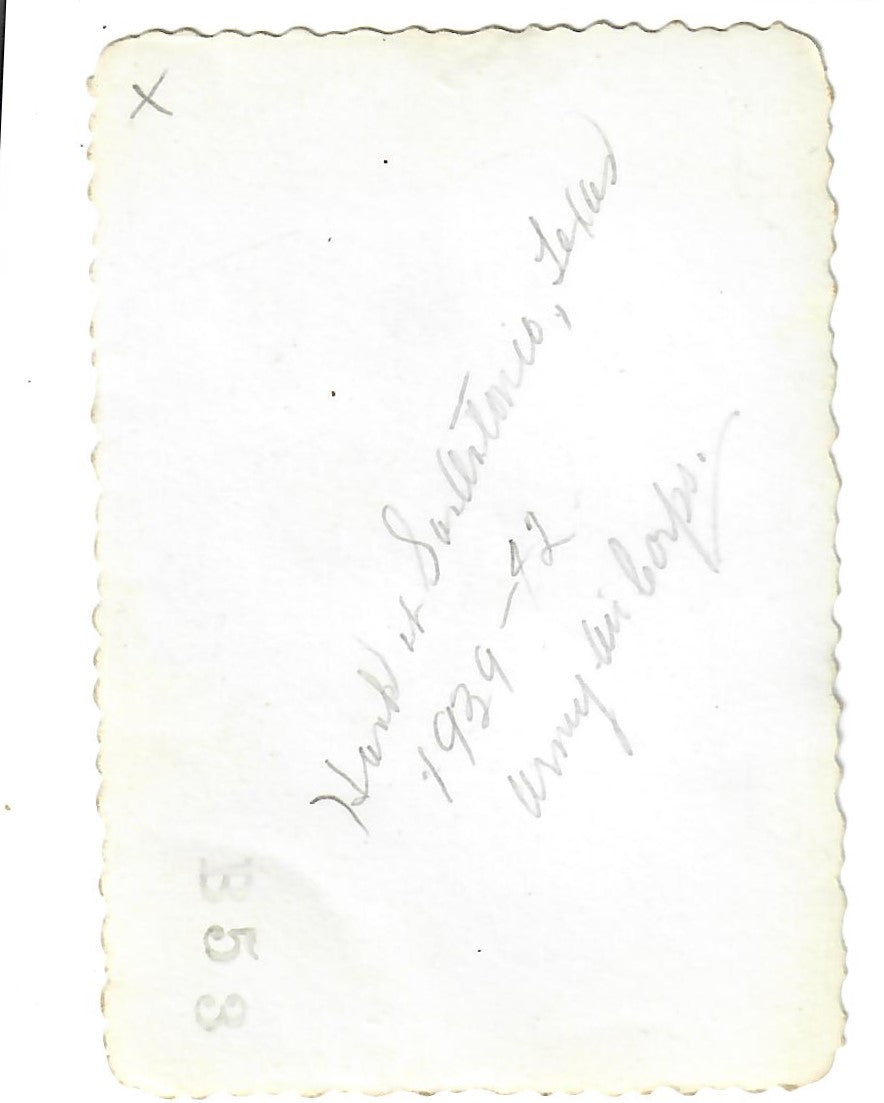 X
Hank at San Antonio, Texas
1939-42
Army Air Corps.
B53